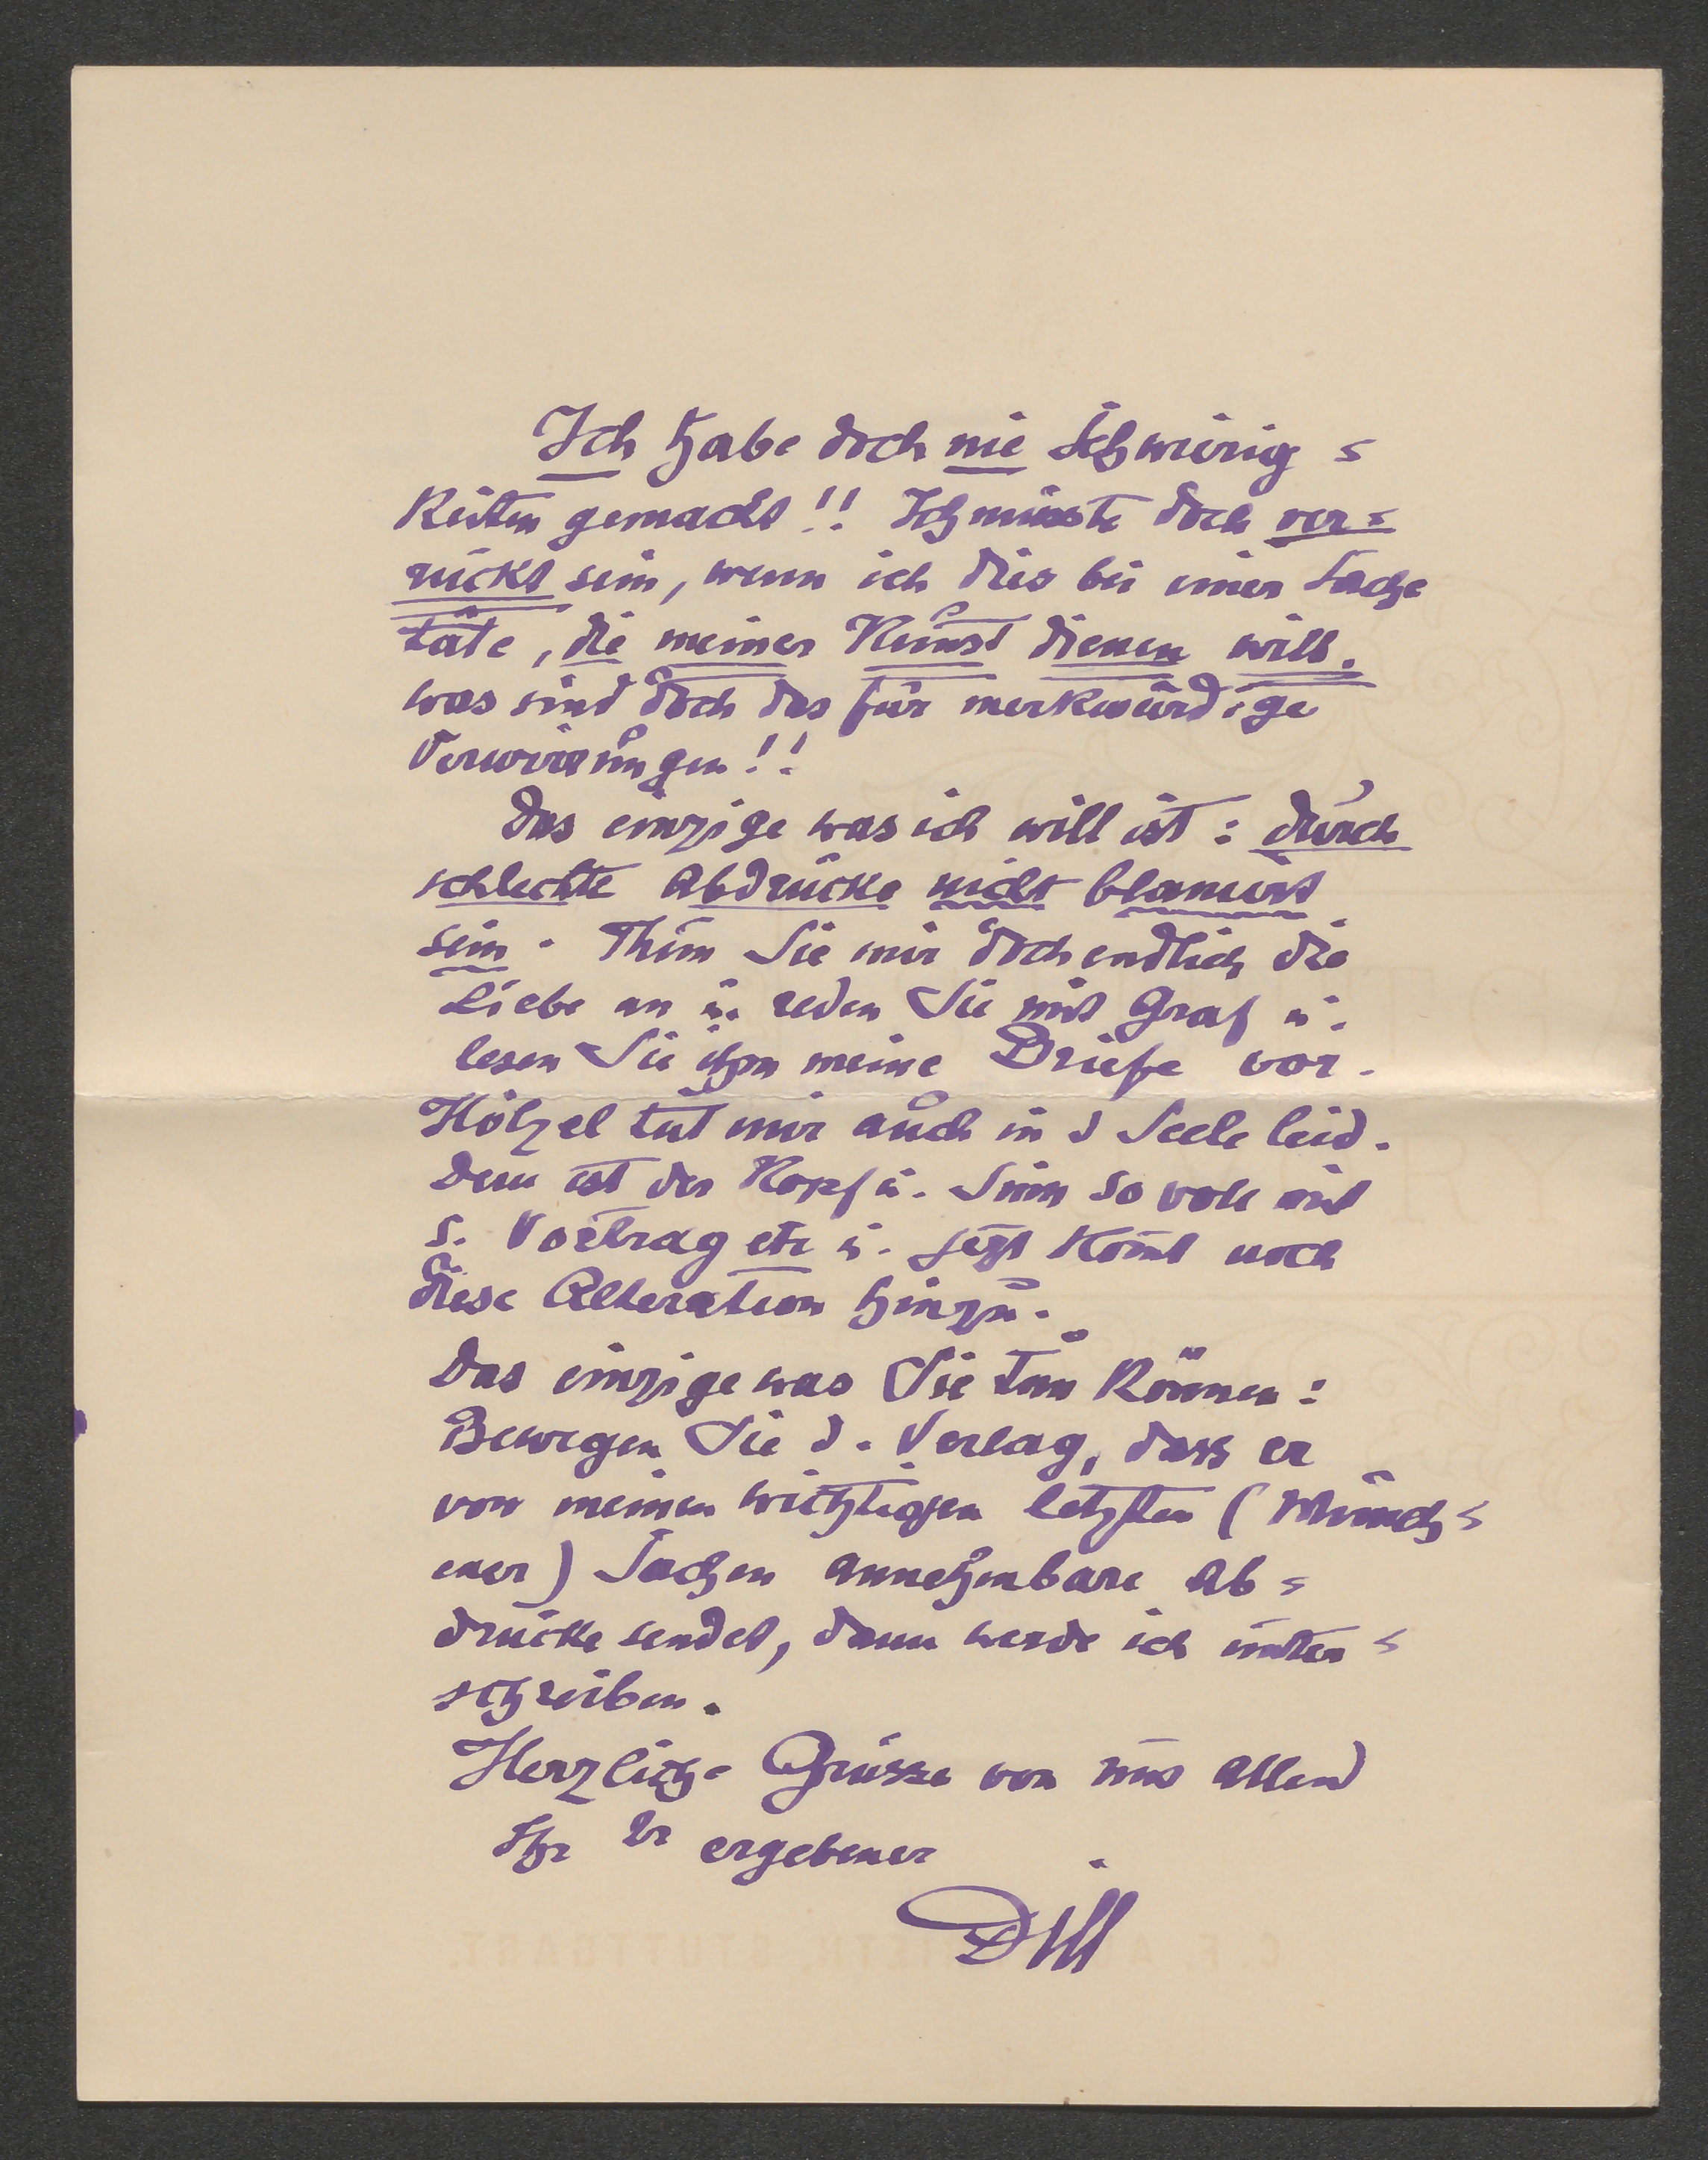 Ich habe doch nie Schwierig=
keiten gemacht!! Ich müsste doch ver=
rückt sein, wenn ich dies bei einer Sache
täte, die meiner Kunst dienen will.
was sind doch das für merkwürdige
Verwirrungen!!
Das einzige was ich will ist: durch
schlechte Abdrücke nicht blamiert
sein. Thun Sie mir doch endlich die
Liebe an u. reden Sie mit Graf u.
lesen Sie ihm meine Briefe vor.
Hölzel tut mir auch in d Seele leid.
Dem ist der Kopf u. Sinn so voll mit
s. Vortrag etc u. jetzt komt noch
diese Alteration hinzu.
Das einzige was Sie tun können:
Bewegen Sie d. Verlag, dass er
von meinen wichtigen letzten (Münch=
ener) Sachen annehmbare Ab=
drücke sendet, dann werde ich unter=
schreiben.
Herzliche Grüsse von uns allen
Ihr Er ergebener
Dill